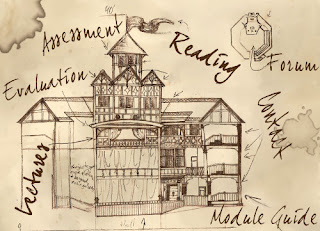 Assessment
Reading
Forum
Evaluation
Contact
Lectures
Module Guide